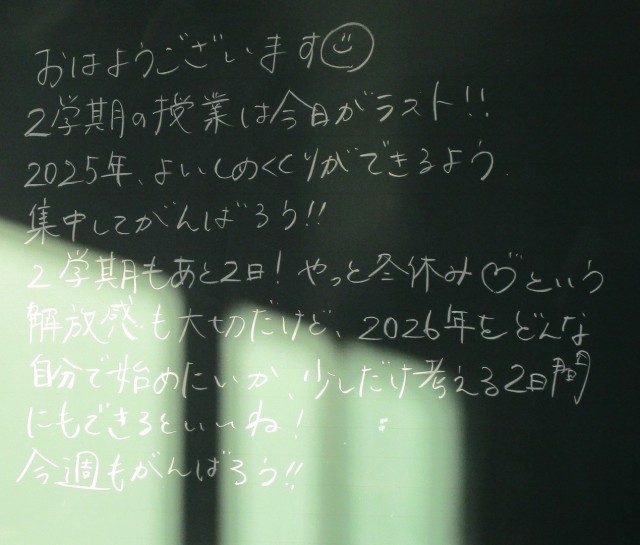 おはようございます
2学期の授業は今日がラスト!!
2025年、よいしめくくりができるよう
集中してがんばろう!!
2学期もあと2日!やっと冬休み♡という
解放感も大切だけど、2026年をどんな
自分で始めたいか、少しだけ考える2日間
にもできるといいね!
今週もがんばろう!!